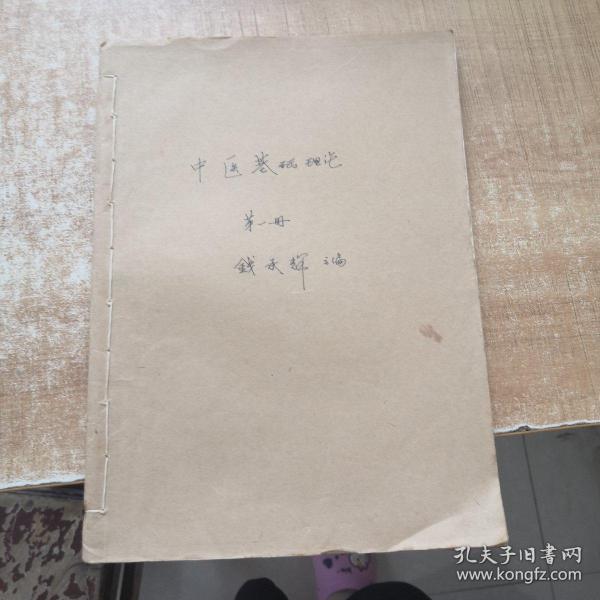 中医基础理论
第一册
钱承辉 主编
孔夫子旧书网
www.kongfz.com